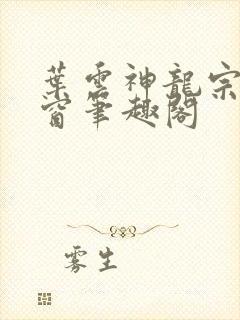 葉雲神龍宗
窗筆趣閣
雾生